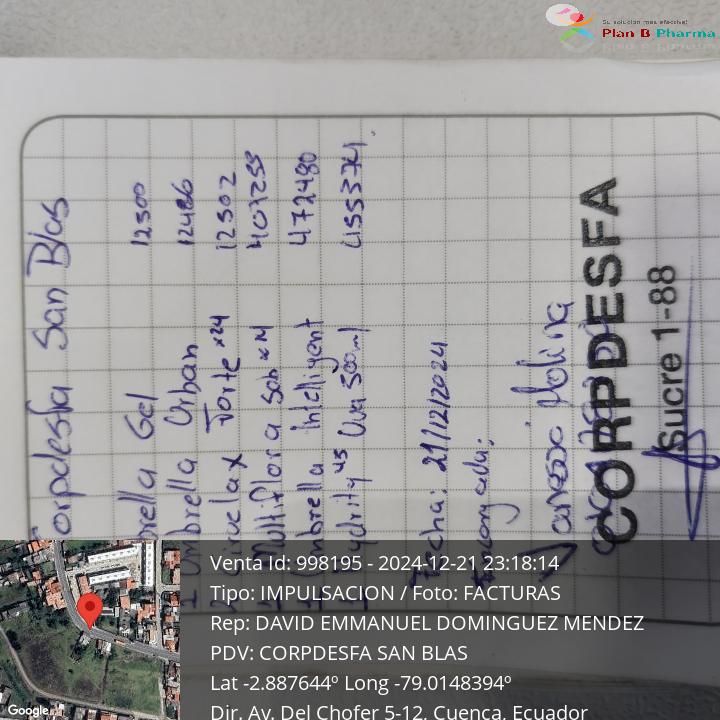 Su solución más efectiva!
Plan B Pharma
Corpdesfa San Blas
Gel 12500
1 Umbrella Urban 12486
Ciruelax Forte x24 12502
Multiflora Sob x 407255
1 Umbrella Intelligent 472480
45 Uva 500ml 4553741
Fecha: 21/12/2024
Encargada:
Molina
CORPDESFA
Sucre 1-88
Venta Id: 998195 - 2024-12-21 23:18:14
Tipo: IMPULSACION / Foto: FACTURAS
Rep: DAVID EMMANUEL DOMINGUEZ MENDEZ
PDV: CORPDESFA SAN BLAS
Lat -2.887644º Long -79.0148394º
Dir. Av. Del Chofer 5-12, Cuenca, Ecuador
Google